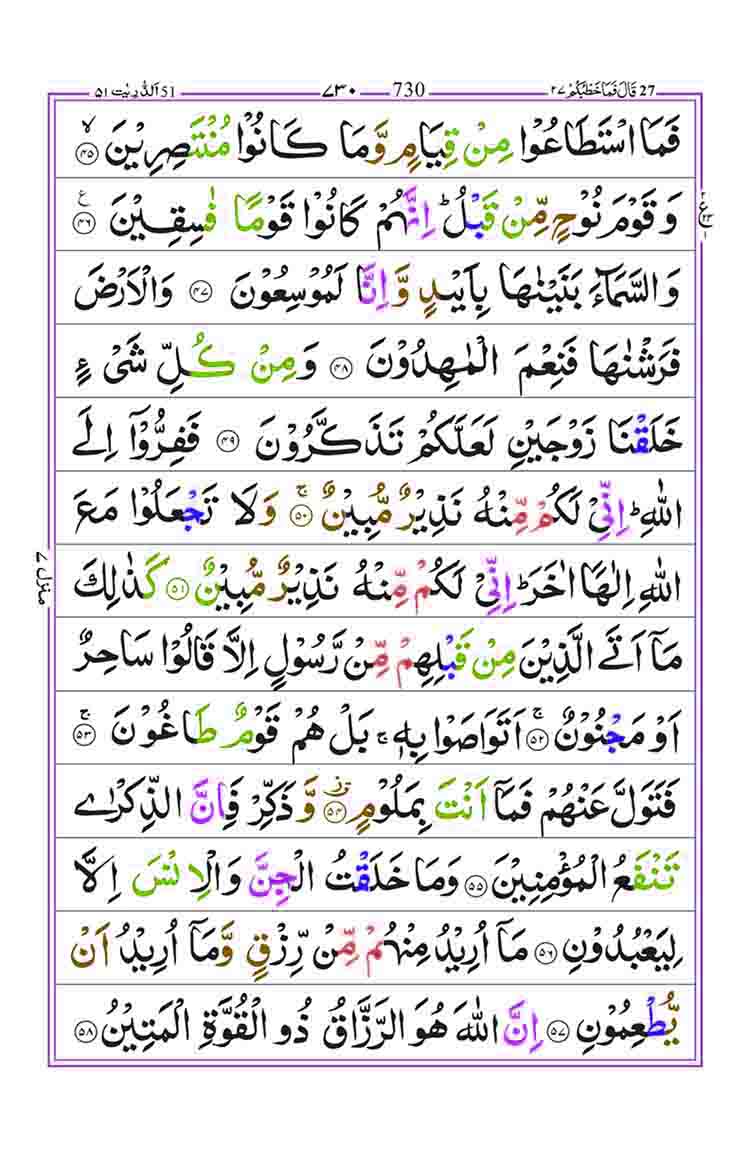 27 قَالَ فَمَا خَطْبُكُمْ ٢٧ 730 ٧٣٠ 51 اَلذّٰرِيٰت ٥١
فَمَا اسْتَطَاعُوْا مِنْ قِيَامٍ وَّمَا كَانُوْا مُنْتَصِرِيْنَ ۙ﴿۴۵﴾
وَ قَوْمَ نُوْحٍ مِّنْ قَبْلُ ؕ اِنَّهُمْ كَانُوْا قَوْمًا فٰسِقِيْنَ ﴿۴۶﴾ع
وَ السَّمَآءَ بَنَيْنٰهَا بِاَيْىدٍ وَّ اِنَّا لَمُوْسِعُوْنَ ﴿۴۷﴾ وَ الْاَرْضَ
فَرَشْنٰهَا فَنِعْمَ الْمٰهِدُوْنَ ﴿۴۸﴾ وَ مِنْ كُلِّ شَىْءٍ
خَلَقْنَا زَوْجَيْنِ لَعَلَّكُمْ تَذَكَّرُوْنَ ﴿۴۹﴾ فَفِرُّوْۤا اِلَى
اللّٰهِ ؕ اِنِّىْ لَكُمْ مِّنْهُ نَذِيْرٌ مُّبِيْنٌ ۚ﴿۵۰﴾ وَ لَا تَجْعَلُوْا مَعَ
اللّٰهِ اِلٰهًا اٰخَرَ ؕ اِنِّىْ لَكُمْ مِّنْهُ نَذِيْرٌ مُّبِيْنٌ ﴿۵۱﴾ كَذٰلِكَ
مَاۤ اَتَى الَّذِيْنَ مِنْ قَبْلِهِمْ مِّنْ رَّسُوْلٍ اِلَّا قَالُوْا سَاحِرٌ
اَوْ مَجْنُوْنٌ ۚ﴿۵۲﴾ اَتَوَاصَوْا بِهٖ ۚ بَلْ هُمْ قَوْمٌ طَاغُوْنَ ۚ﴿۵۳﴾
فَتَوَلَّ عَنْهُمْ فَمَاۤ اَنْتَ بِمَلُوْمٍ ﴿۵۴﴾ وَّ ذَكِّرْ فَاِنَّ الذِّكْرٰى
تَنْفَعُ الْمُؤْمِنِيْنَ ﴿۵۵﴾ وَ مَا خَلَقْتُ الْجِنَّ وَ الْاِنْسَ اِلَّا
لِيَعْبُدُوْنِ ﴿۵۶﴾ مَاۤ اُرِيْدُ مِنْهُمْ مِّنْ رِّزْقٍ وَّ مَاۤ اُرِيْدُ اَنْ
يُّطْعِمُوْنِ ﴿۵۷﴾ اِنَّ اللّٰهَ هُوَ الرَّزَّاقُ ذُو الْقُوَّةِ الْمَتِيْنُ ﴿۵۸﴾
منزل ٧